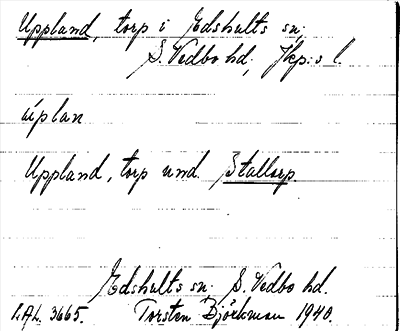 Uppland, torp i Edshults sn,
S. Vedbo hd., Jkp:s l.
úplan
Uppland, torp und. Stallarp.
Edshults sn. S. Vedbo hd.
L.A.L. 3665. Torsten Björkman 1940.